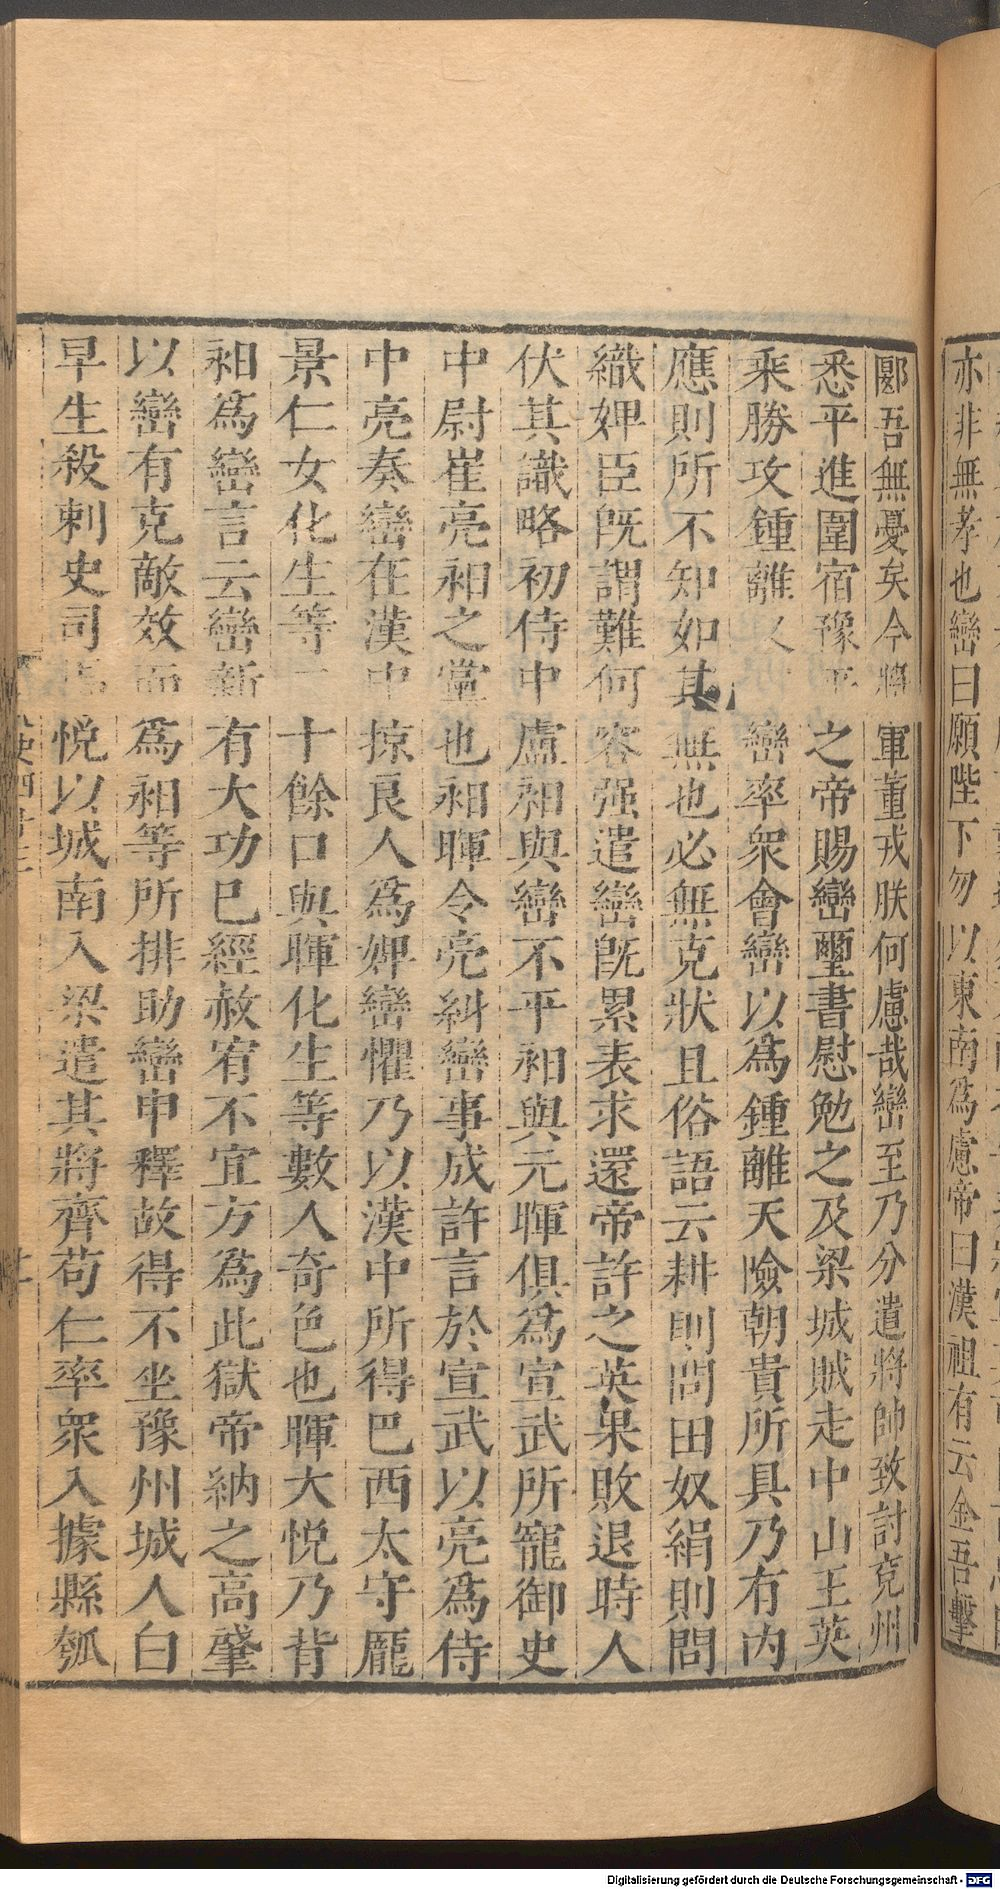 亦非無孝也巒曰願陛下勿以東南為慮帝曰漢祖有云金吾擊
郾吾無憂矣今將軍董戎朕何慮哉巒至乃分遣將帥致討兗州
悉平進圍宿豫平之帝賜巒璽書慰勉之及梁城賊走中山王英
乘勝攻鍾離又巒率眾會巒以為鍾離天險朝貴所具乃有內
應則所不知如其無也必無克狀且俗語云耕則問田奴絹則問
織婢臣旣謂難何容强遣巒旣累表求還帝許之英果敗退時人
伏其識略初侍中盧昶與巒不平昶與元暉俱為宣武所寵御史
中尉崔亮昶之黨也昶暉令亮糾巒事成許言於宣武以亮為侍
中亮奏巒在漢中掠良人為婢巒懼乃以漢中所得巴西太守龐
景仁女化生等二十餘口與暉化生等數人奇色也暉大悅乃背
昶為巒言云巒新有大功已經赦宥不宜方為此獄帝納之高肇
以巒有克敵效而為昶等所排助巒申釋故得不坐豫州城人白
早生殺刺史司馬悅以城南入梁遣其將齊苟仁率眾入據縣瓠